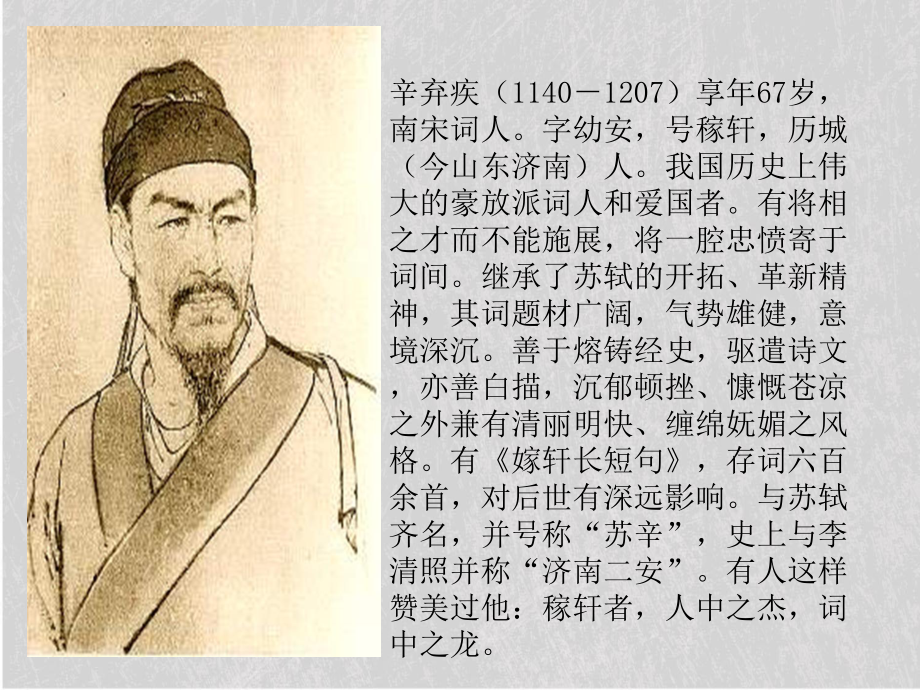 辛弃疾（1140－1207）享年67岁，
南宋词人。字幼安，号稼轩，历城
（今山东济南）人。我国历史上伟
大的豪放派词人和爱国者。有将相
之才而不能施展，将一腔忠愤寄于
词间。继承了苏轼的开拓、革新精
神，其词题材广阔，气势雄健，意
境深沉。善于熔铸经史，驱遣诗文
，亦善白描，沉郁顿挫、慷慨苍凉
之外兼有清丽明快、缠绵妩媚之风
格。有《嫁轩长短句》，存词六百
余首，对后世有深远影响。与苏轼
齐名，并号称“苏辛”，史上与李
清照并称“济南二安”。有人这样
赞美过他：稼轩者，人中之杰，词
中之龙。